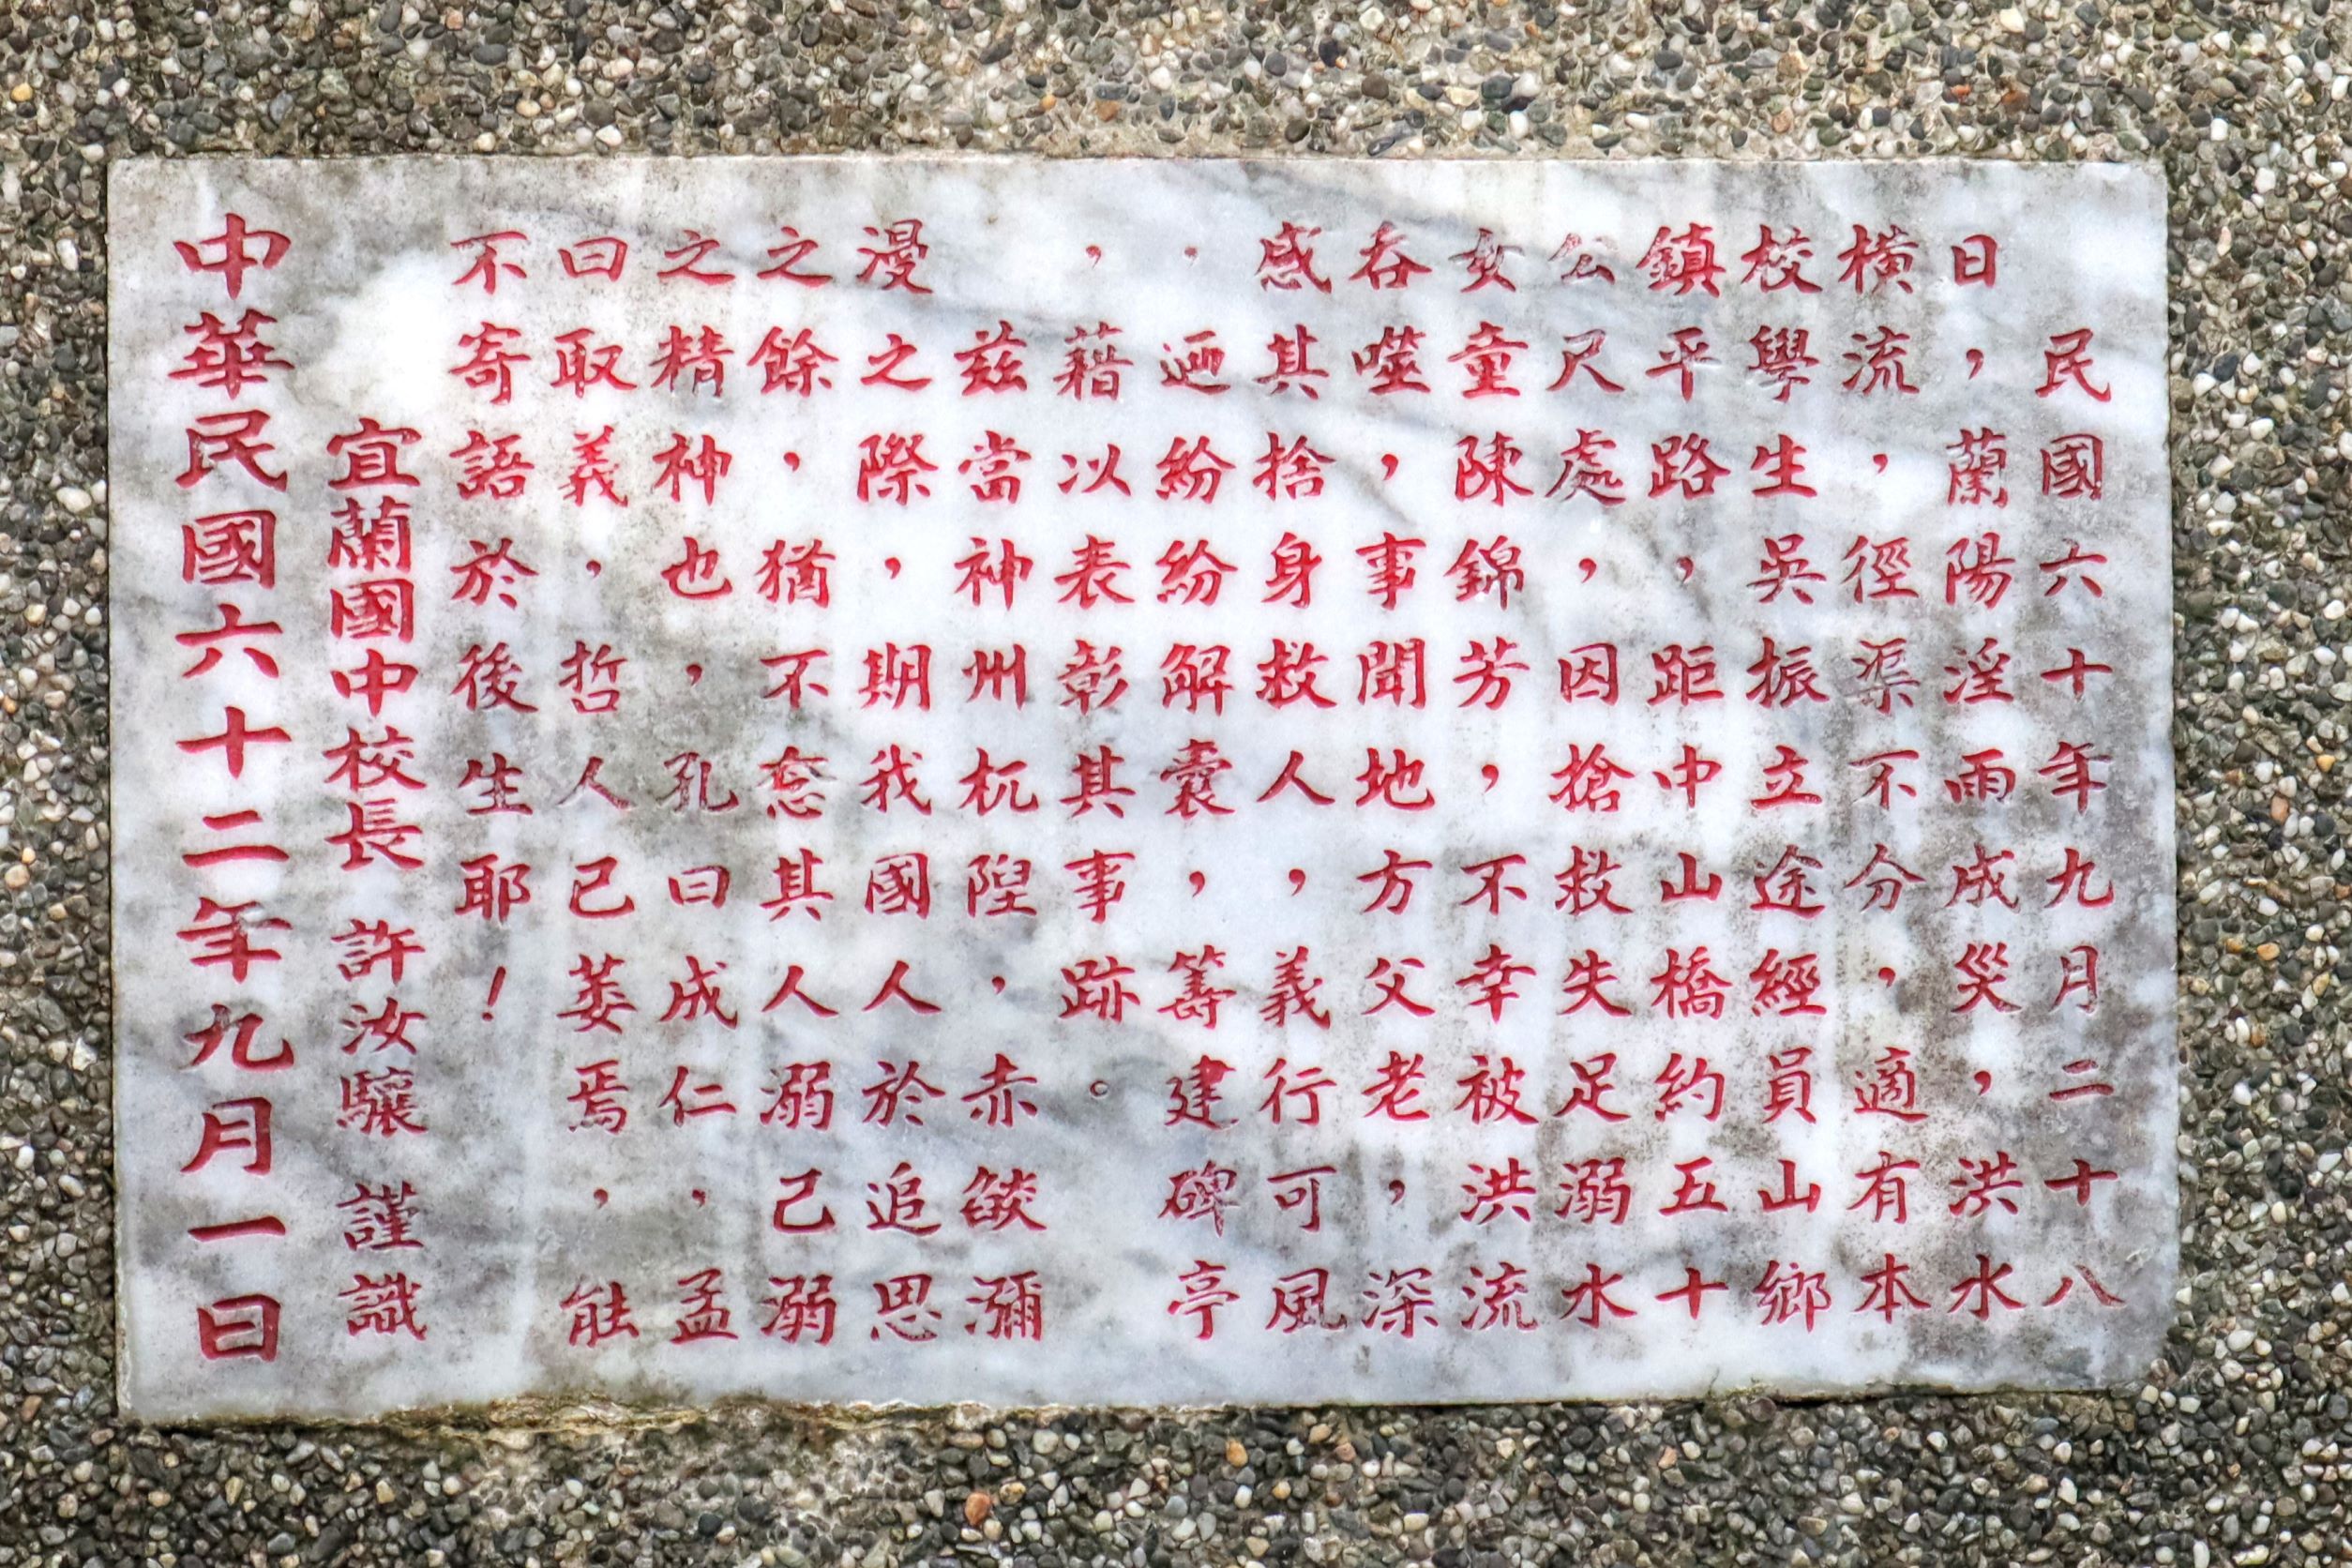 民國六十年九月二十八
日，蘭陽淫雨成災，洪水
橫流，徑渠不分，適有本
校學生吳振立途經員山鄉
鎮平路，距中山橋約五十
公尺處，因搶救失足溺水
女童陳錦芳，不幸被洪流
吞噬，事聞地方父老，深
感其捨身救人，義行可風
，迺紛紛解囊，籌建碑亭
，藉以表彰其事跡。
茲當神州杌隉，赤燄瀰
漫之際，期我國人於追思
之餘，猶不忘其人溺己溺
之精神也，孔曰成仁，孟
曰取義，哲人已萎焉，能
不寄語於後生耶！
宜蘭國中校長 許汝驤 謹識
中華民國六十二年九月一日